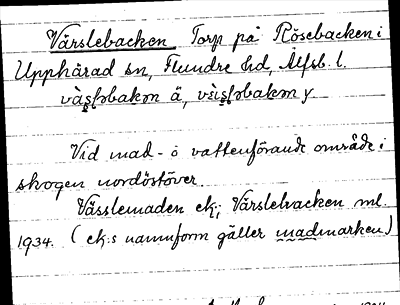 Värslebacken Torp på Rösebacken i
Upphärad sn, Flundre hd, Älfsb. l.
Vid mad- o vattenförande område i
skogen nordöstöver.
Vässlemaden ek; Värslebacken ml.
1934. (ek:s namnform gäller madmarken)